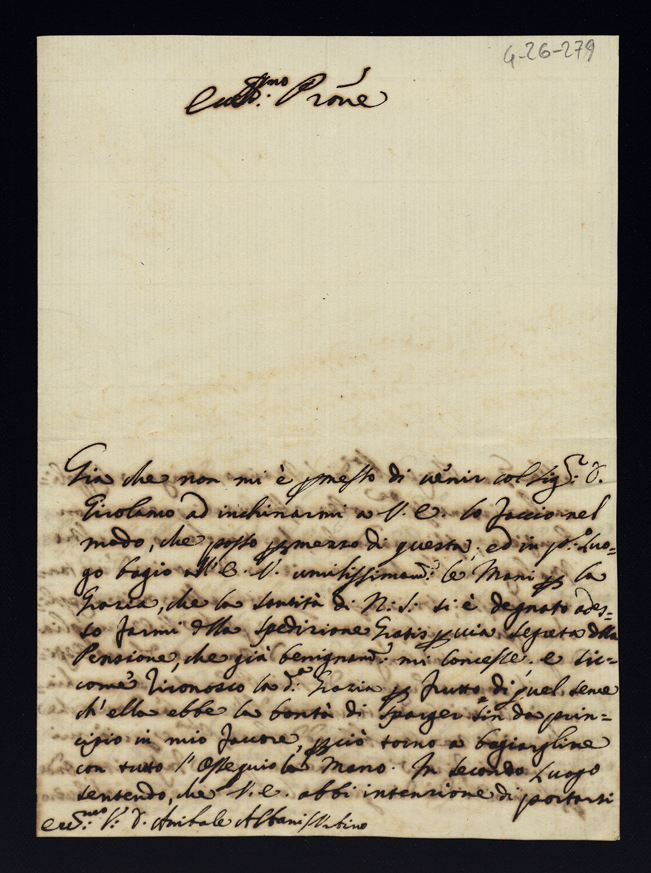 4-26-279
Ecc.mo Prone
Gia che non mi è pmesso di venir col Sig.r D.
Girolamo ad inchinarmi a V. E. lo faccio nel
modo, che posso p mezzo di questa; ed in p.o Luo=
go bagio all'E. V. umilissimam.te le Mani p la
Grazia, che la santità di N: S: si è degnato ades=
so farmi dlla spedizione Gratis p via segreta dlla
Pensione, che già benignam.te mi concesse, e sic=
come riconosco la d.a Grazia p frutto di quel seme
ch'ella ebbe la bontà di sparger sin da prin=
cipio in mio favore, pciò torno a bagiargline
con tutto l'Ossequio la Mano. In secondo Luogo
sentendo, che V. E. abbi intenzione di portarsi
Em.mo S: D. Anibale Albani Urbino